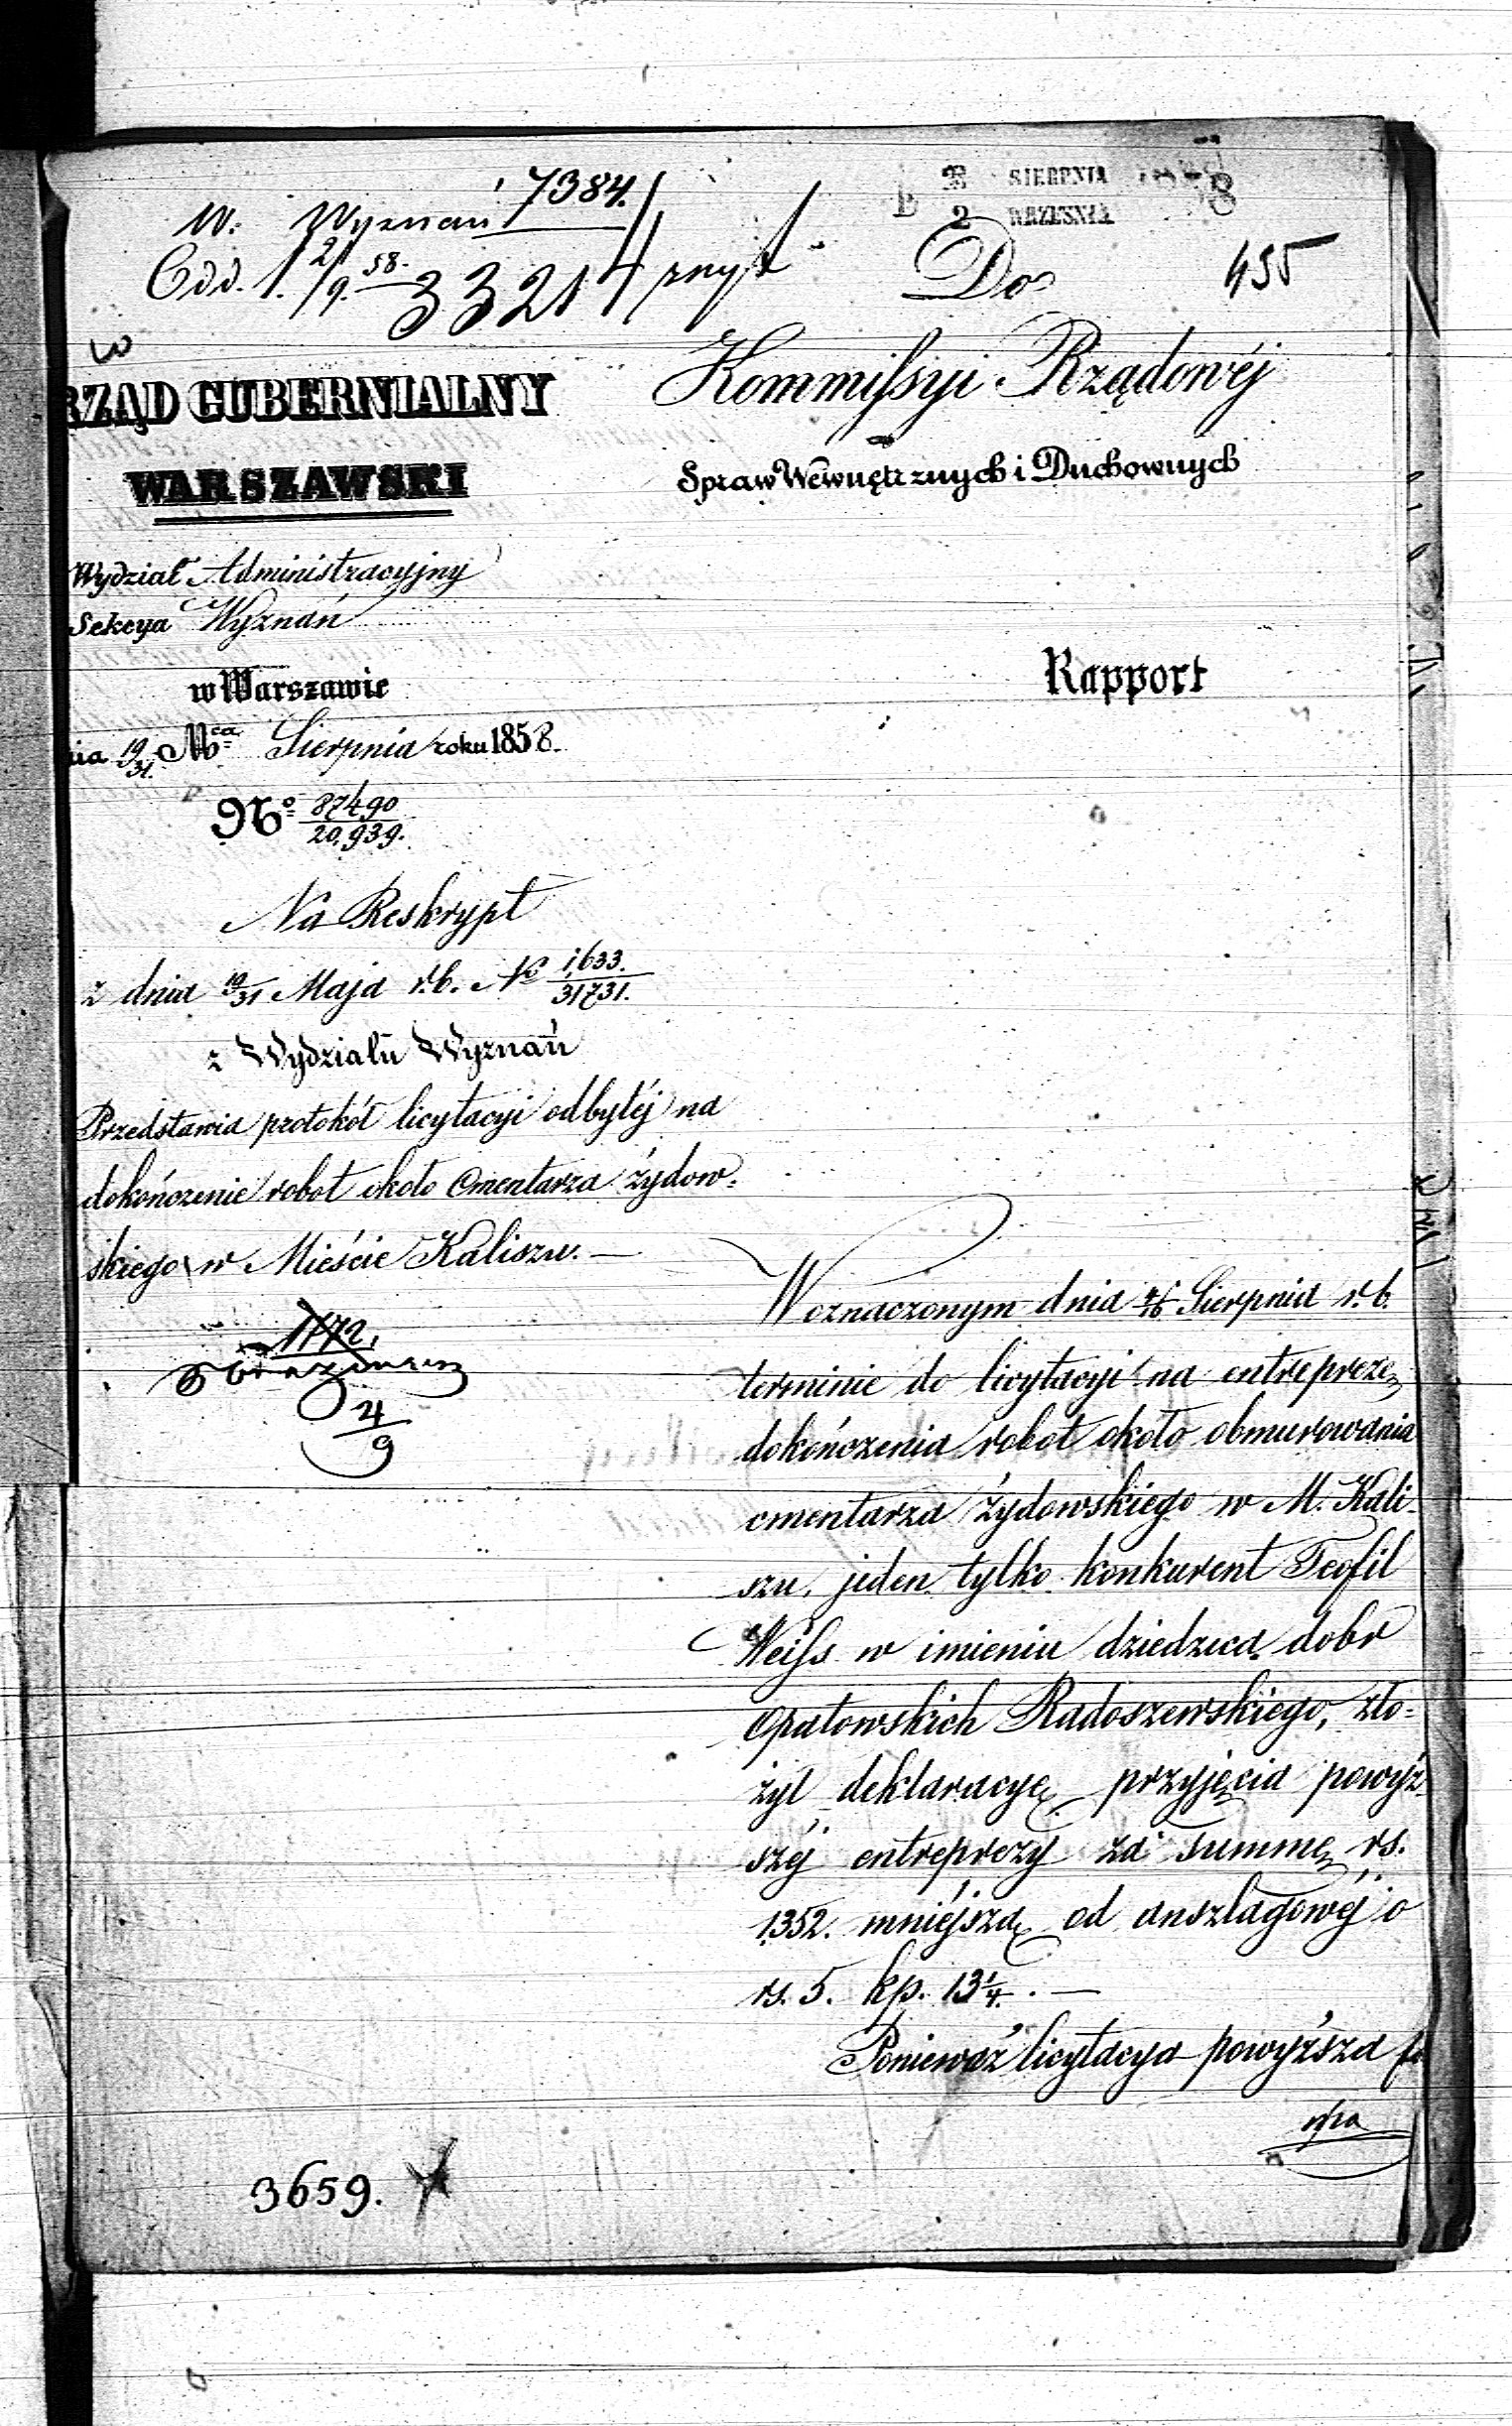 7384.
W. Wyznań
Odd. 1. 2/9 58. 33214
SIERPNIA
2 WRZEŚNIA
Do
435
RZĄD GUBERNIALNY
WARSZAWSKI
Kommissyi Rządowéj
Spraw Wewnętrznych i Duchownych
Wydział Administracyjny
Sekcya Wyznań
w Warszawie
nia 19/31 Mca Sierpnia roku 1858.
No 87490/20,939.
Rapport
Na Reskrypt
z dnia 19/31 Maja r.b. No 1,633./31,731.
z Wydziału Wyznań
Przedstawia protokół licytacyi odbytéj na
dokończenie robot około Cmentarza żydow-
skiego w Mieście Kaliszu. —
1172.
4/9
W oznaczonym dnia 4/16 Sierpnia r.b.
terminie do licytacyi na entreprezę
dokończenia robot około obmurowania
cmentarza żydowskiego w M. Kali-
szu, jeden tylko konkurent Teofil
Weiss w imieniu dziedzica dobr
Opatowskich Radoszewskiego, zło-
żył deklaracyę przyjęcia powyż-
széj entreprezy za summę rs.
1352. mniéjszą od anszlagowéj o
rs. 5. kp. 13 1/4. —
Ponieważ licytacya powyższa
3659.